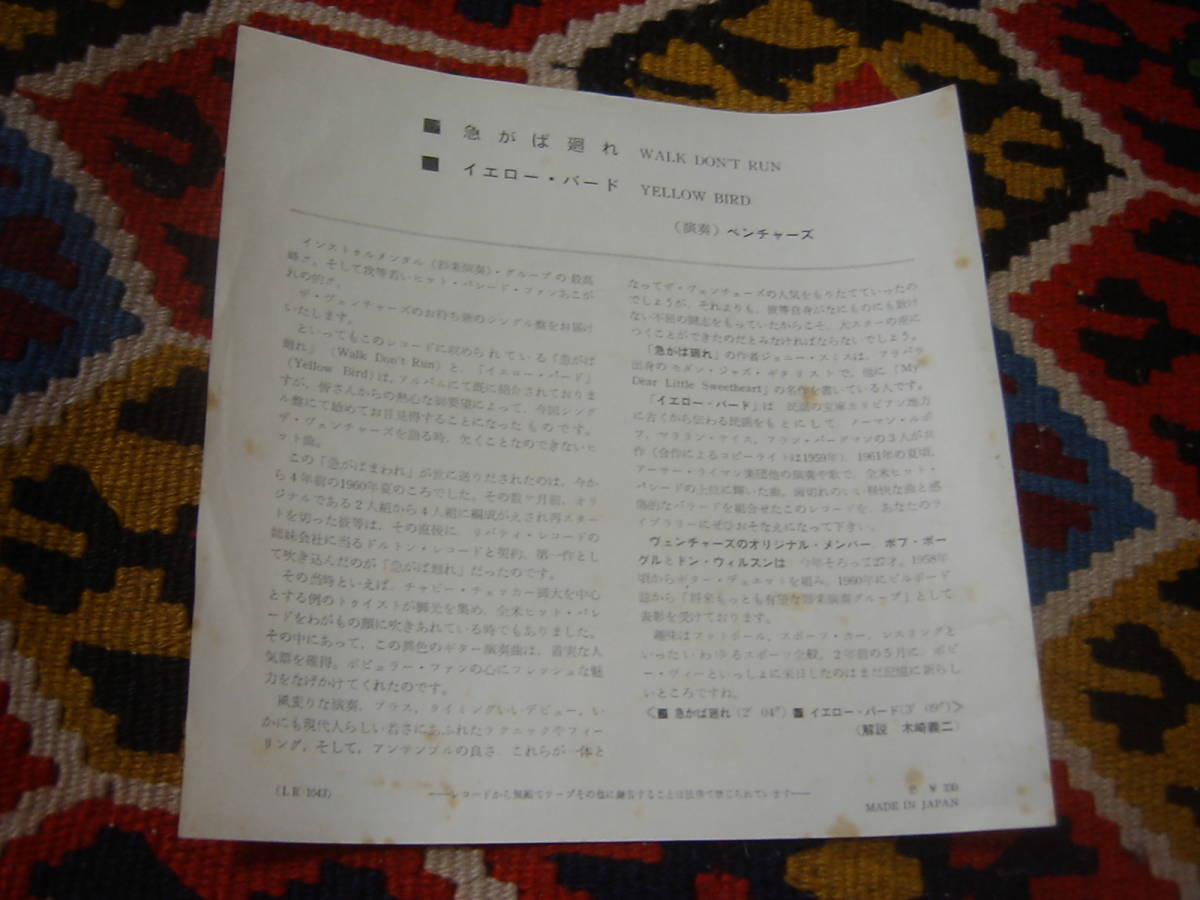 ■ 急がば廻れ WALK DON'T RUN
■ イエロー・バード YELLOW BIRD
(演奏) ベンチャーズ
インストゥルメンタル (器楽演奏)・グループの最高
峰さ。そして我等若いヒット・パレード・ファンあこが
れの的さ。
ザ・ヴェンチャーズのお待ち兼のシングル盤をお届け
いたします。
といってもこのレコードに収められている「急がば
廻れ」 (Walk Don't Run) と、「イエロー・バード」
(Yellow Bird) は、アルバムにて既に紹介されておりま
すが、皆さんからの熱心な御要望によって、今回シング
ル盤にて始めてお目見得することになったものです。
ザ・ヴェンチャーズを語る時、欠くことなのできないヒ
ット曲。
この「急がばまわれ」が世に送りだされたのは、今か
ら4年前の1960年夏のころでした。その数ヶ月前、オリ
ジナルである2人組から4人組に編成がえされ再スター
トを切った彼等は、その直後に、リバティ・レコードの
姉妹会社に当るドルトン・レコードと契約、第一作とし
て吹き込んだのが「急がば廻れ」だったのです。
その当時といえば、チャビー・チェッカー師大を中心
とする例のトゥイストが脚光を集め、全米ヒット・パレ
ードをわがもの顔に吹きあれている時でもありました。
その中にあって、この異色のギター演奏曲は、着実な人
気票を獲得。ポピュラー・ファンの心にフレッシュな魅
力をなげかけてくれたのです。
風変りな演奏、プラス、タイミングいいデビュー、い
かにも現代人らしい若さにあふれたテクニックやフィー
リング、そして、アンサンブルの良さ、これらが一体と
なってザ・ヴェンチャーズの人気をもりたてていったの
でしょうが、それよりも、彼等自身がなにものにも負け
ない不屈の闘志をもっていたからこそ、大スターの座に
つくことができたのだとみなければならないでしょう。
「急がば廻れ」の作者ジョニー・スミスは、アラバマ
出身のモダン・ジャズ・ギタリストで、他に「My
Dear Little Sweetheart」の名作を書いている人です。
「イエロー・バード」は 民謡の宝庫カリビアン地方
に古くから伝わる民謡をもとにして ノーマン・ルボ
フ、マリラン・ケイス、アラン・バーグマンの3人が共
作 (合作によるコピーライトは1959年)。1961年の夏頃、
アーサー・ライマン楽団他の演奏や歌で、全米ヒット・
パレードの上位に輝いた曲。歯切れのいい軽快な曲と感
傷的なバラードを組合せたこのレコードを、あなたのラ
イブラリーにぜひおそなえになって下さい。
ヴェンチャーズのオリジナル・メンバー、ボブ・ボー
グルとドン・ウィルスンは 今年そろって27才。1958年
頃からギター・デュエットを組み、1960年にビルボード
誌から「将来もっとも有望な器楽演奏グループ」として
表彰を受けております。
趣味はフットボール、スポーツ・カー、レスリングと
いったいわゆるスポーツ全般。2年前の5月に、ボビ
ー・ヴィーといっしょに来日したのはまだ記憶に新らし
いところですね。
<■ 急がば廻れ (2' 04") ■ イエロー・バード (3' 09")>
(解説 木崎義二)
(LR 1043)
──レコードから無断でテープその他に録音することは法律で禁じられています──
¥ 330
MADE IN JAPAN